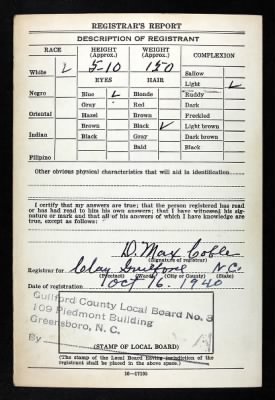 REGISTRAR'S REPORT
DESCRIPTION OF REGISTRANT
RACE HEIGHT (Approx.) WEIGHT (Approx.) COMPLEXION
White ✓ 5-10 150 Sallow
EYES HAIR Light ✓
Negro Blue ✓ Blonde Ruddy
Gray Red Dark
Oriental Hazel Brown Freckled
Brown Black ✓ Light brown
Indian Black Gray Dark brown
Bald Black
Filipino
Other obvious physical characteristics that will aid in identification
I certify that my answers are true; that the person registered has read or has had read to him his own answers; that I have witnessed his signature or mark and that all of his answers of which I have knowledge are true, except as follows:
D. Max Coble
(Signature of registrar)
Registrar for Clay Guilford N.C.
(Precinct) (Ward) (City or County) (State)
Date of registration Oct 16. 1940
Guilford County Local Board No. 3
109 Piedmont Building
Greensboro, N. C.
By
(STAMP OF LOCAL BOARD)
(The stamp of the Local Board having jurisdiction of the registrant shall be placed in the above space.)
16—17105